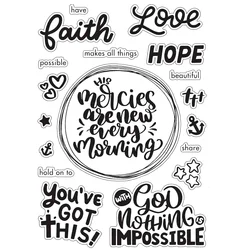 have
faith
Love
makes all things
HOPE
possible
beautiful
His
mercies
are new
every
morning
hold on to
share
you've
GOT
THIS!
WITH GOD
NOTHING
IS
IMPOSSIBLE